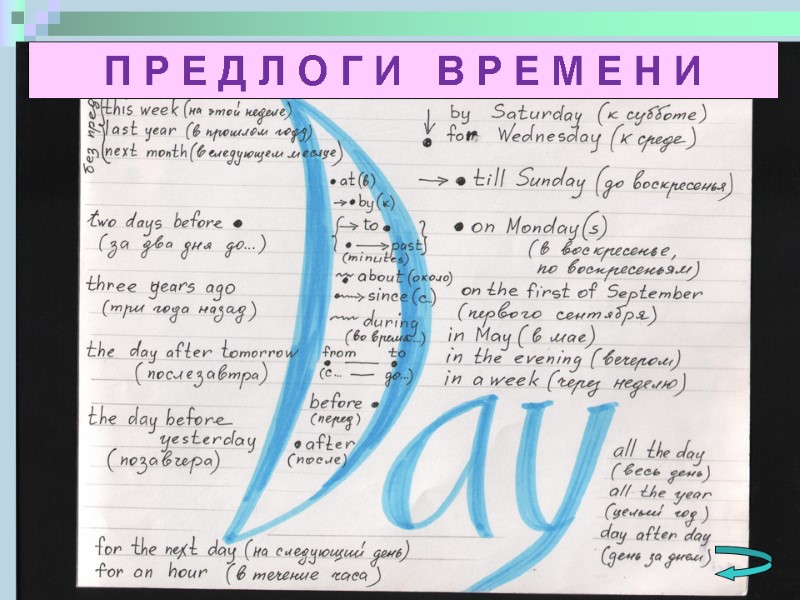 ПРЕДЛОГИ ВРЕМЕНИ
без пред
this week (на этой неделе)
last year (в прошлом году)
next month (в следующем месяце)
two days before
(за два дня до...)
three years ago
(три года назад)
the day after tomorrow
(послезавтра)
the day before
yesterday
(позавчера)
at (в)
by (к)
to
past
(minutes)
about (около)
since (с...)
during
(во время...)
from to
(с... — до...)
before
(перед)
after
(после)
Day
by Saturday (к субботе)
for Wednesday (к среде)
till Sunday (до воскресенья)
on Monday(s)
(в воскресенье,
по воскресеньям)
on the first of September
(первого сентября)
in May (в мае)
in the evening (вечером)
in a week (через неделю)
all the day
(весь день)
all the year
(целый год)
day after day
(день за днем)
for the next day (на следующий день)
for an hour (в течение часа)